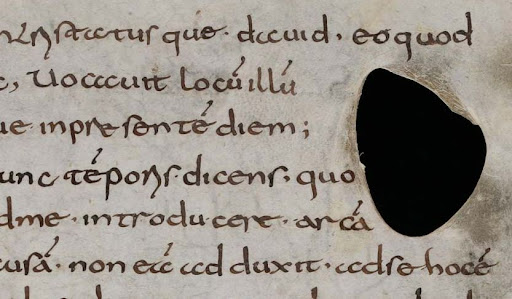 tristatusque. dauid. eo quod
Uocauit locū illū
ue inpresentē diem;
unc tēporis. dicens. quo
dme. introducere. arcā
usā. non eā adduxit. adse hoc ē